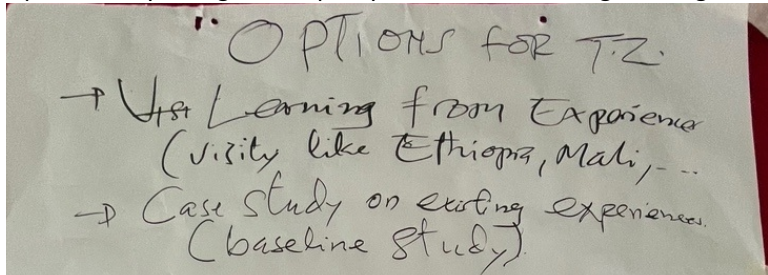 OPTIONS FOR T.Z.
→ Visit Learning from Experience
(visity like Ethiopia, Mali, ...
→ Case Study on existing experiences.
(baseline study)